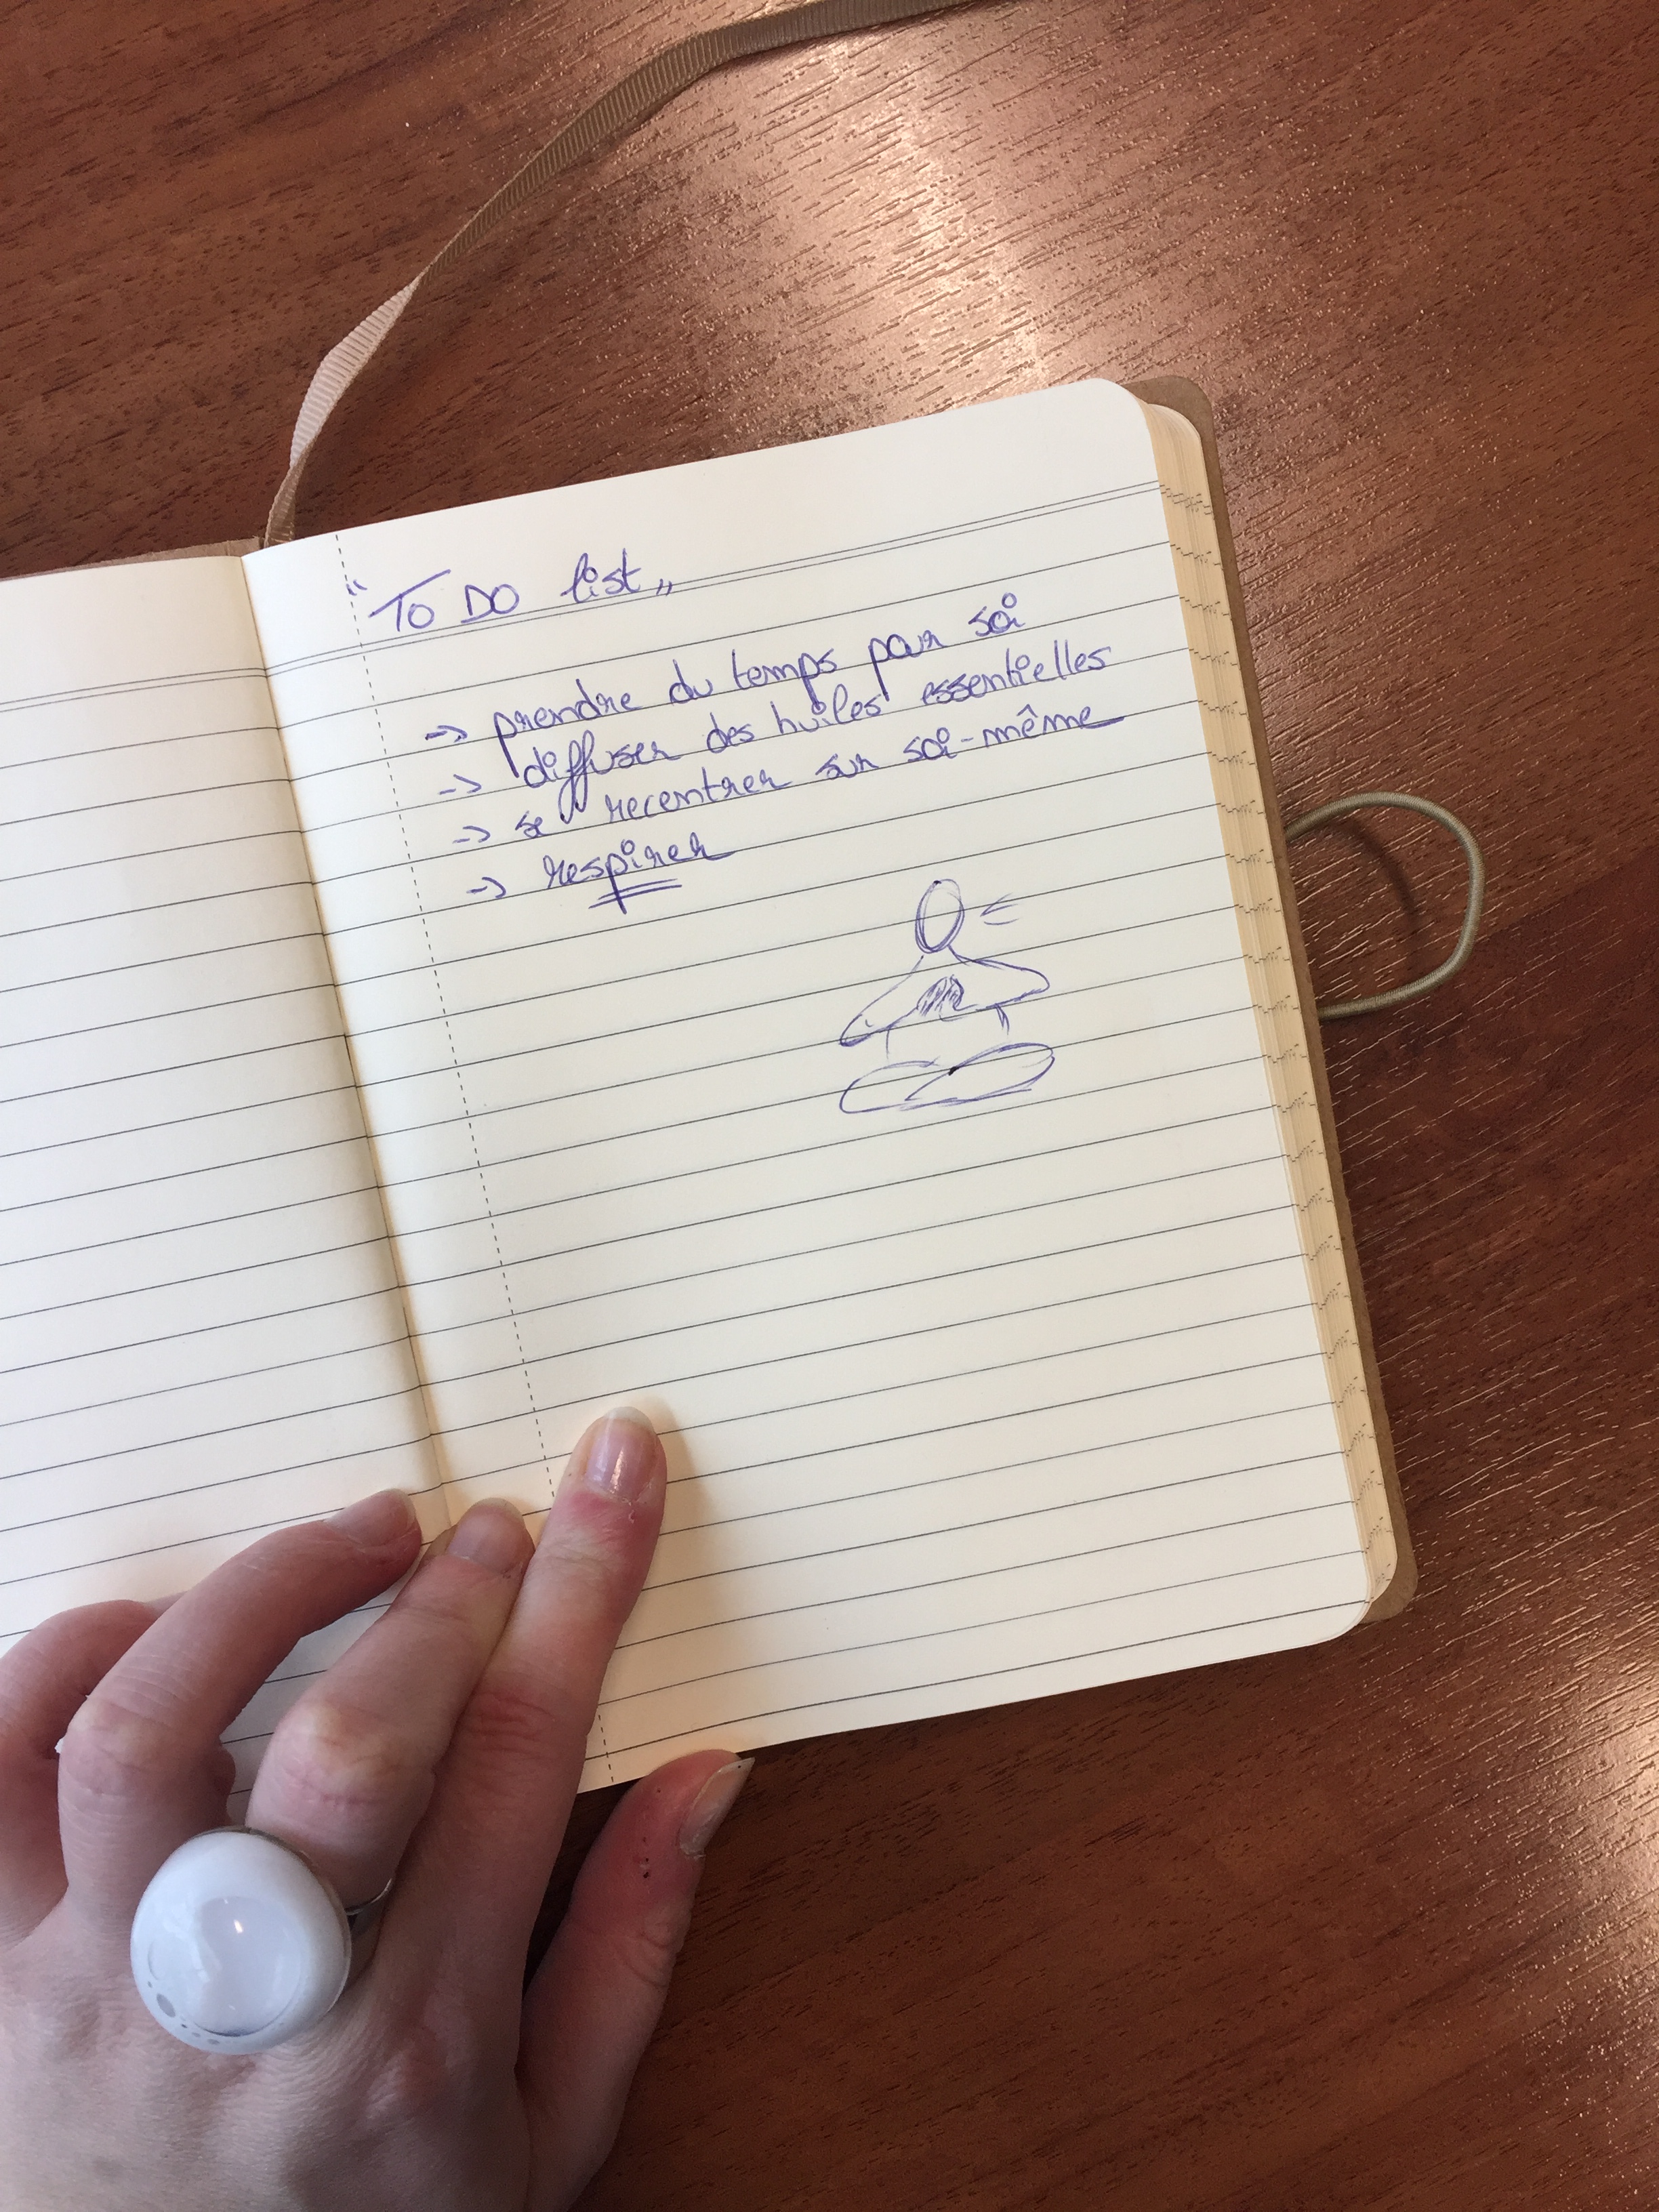 "To DO list"
-> prendre du temps pour soi
-> diffuser des huiles essentielles
-> se recentrer sur soi-même
-> respirer